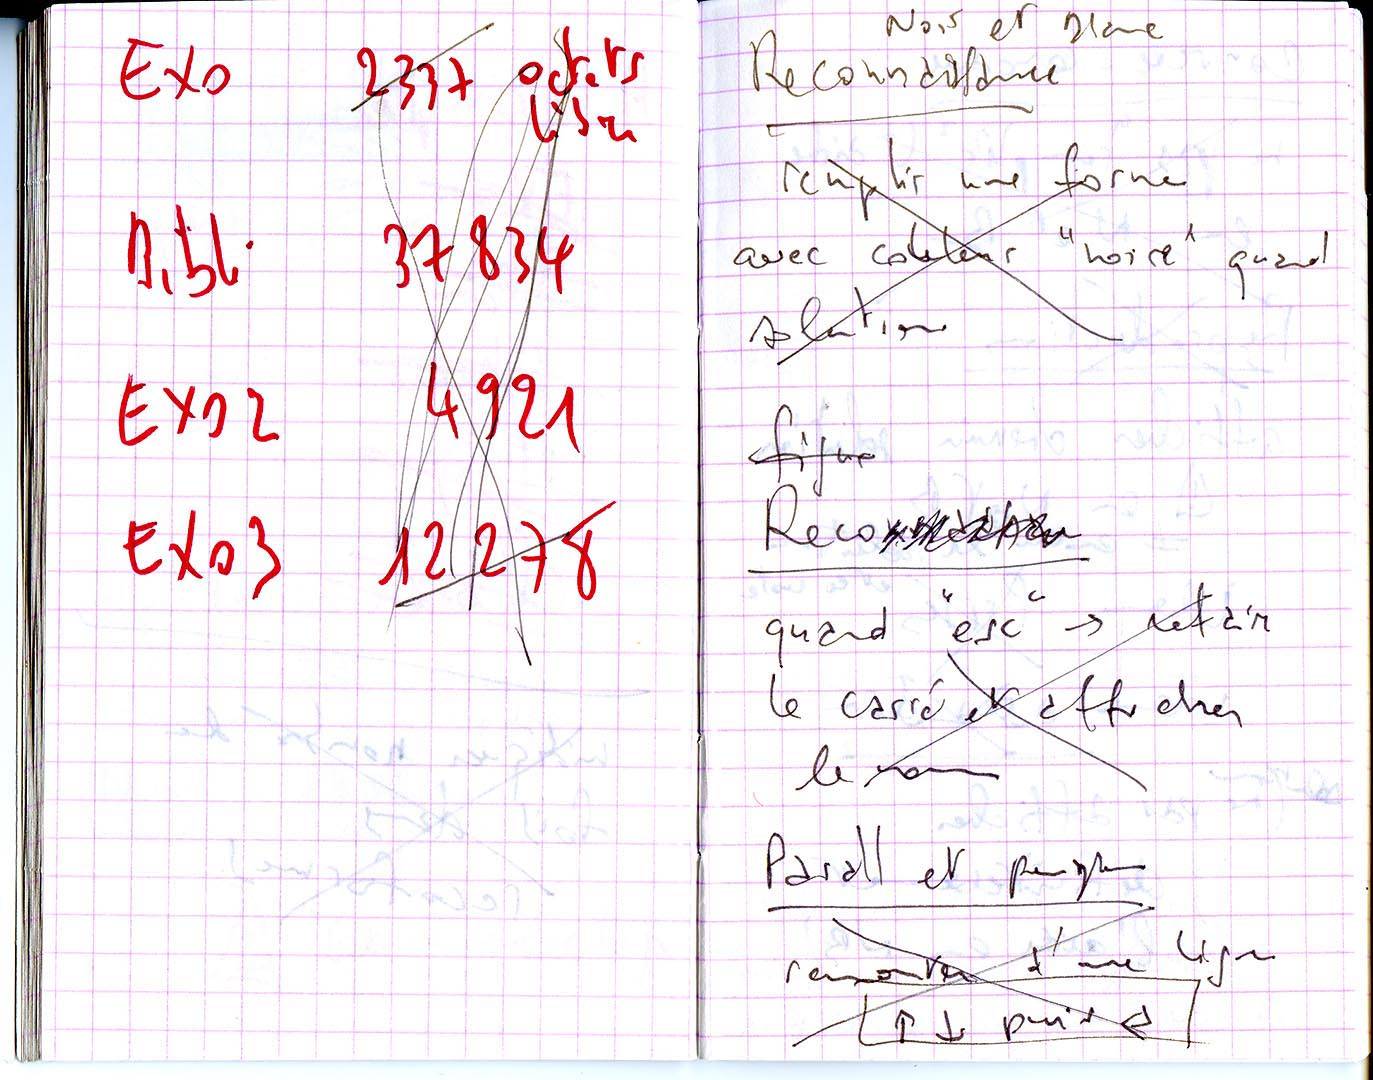 Exo 2337 octets
libre
Bibli. 37 834
Exo 2 4 921
Exo 3 12 278
Noir et blanc
Reconnaissance
remplir une forme
avec couleur "noire" quand
solution
figure
Reco
quand "esc" → refaire
le carré et afficher
le nom
Parall et
remonter d'une ligne
↑ ↓ puis ⏎